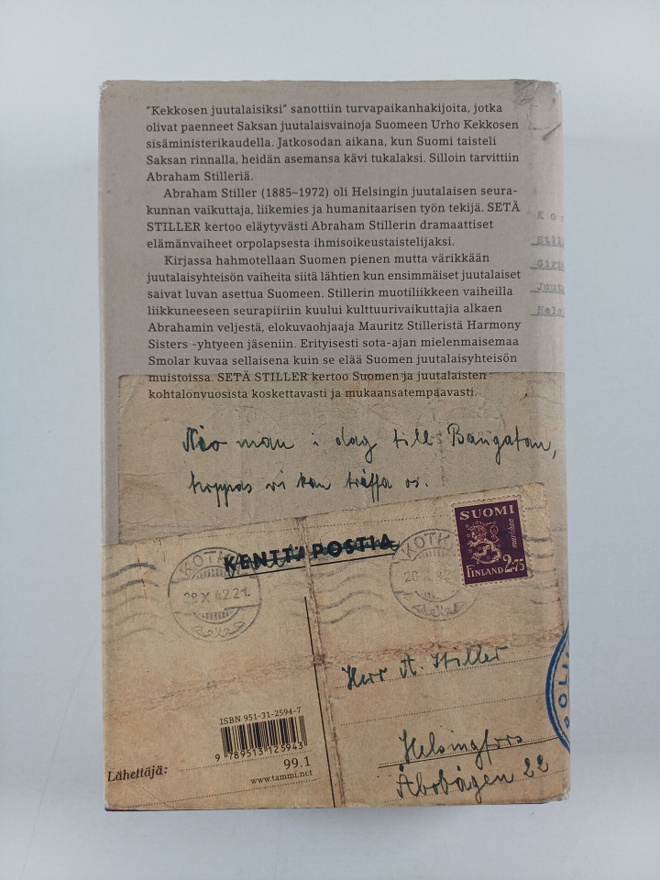 "Kekkosen juutalaisiksi" sanottiin turvapaikanhakijoita, jotka
olivat paenneet Saksan juutalaisvainoja Suomeen Urho Kekkosen
sisäministerikaudella. Jatkosodan aikana, kun Suomi taisteli
Saksan rinnalla, heidän asemansa kävi tukalaksi. Silloin tarvittiin
Abraham Stilleriä.
Abraham Stiller (1885–1972) oli Helsingin juutalaisen seura-
kunnan vaikuttaja, liikemies ja humanitaarisen työn tekijä. SETÄ
STILLER kertoo eläytyvästi Abraham Stillerin dramaattiset
elämänvaiheet orpolapsesta ihmisoikeustaistelijaksi.
Kirjassa hahmotellaan Suomen pienen mutta värikkään
juutalaisyhteisön vaiheita siitä lähtien kun ensimmäiset juutalaiset
saivat luvan asettua Suomeen. Stillerin muotiliikkeen vaiheilla
liikkuneeseen seurapiiriin kuului kulttuurivaikuttajia alkaen
Abrahamin veljestä, elokuvaohjaaja Mauritz Stilleristä Harmony
Sisters -yhtyeen jäseniin. Erityisesti sota-ajan mielenmaisemaa
Smolar kuvaa sellaisena kuin se elää Suomen juutalaisyhteisön
muistoissa. SETÄ STILLER kertoo Suomen ja juutalaisten
kohtalonvuosista koskettavasti ja mukaansatempaavasti.
man i dag till Bangatan,
hoppas vi kan träffa os.
KENTTÄPOSTIA
KOTKA
28 X 42.21.
KOTK
28 X 42
SUOMI
FINLAND 2.75
Herr A. Stiller
Helsingfors
Åbovägen 22
POLI
ISBN 951-31-2594-7
9 789513 125943
99.1
www.tammi.net
Lähettäjä: